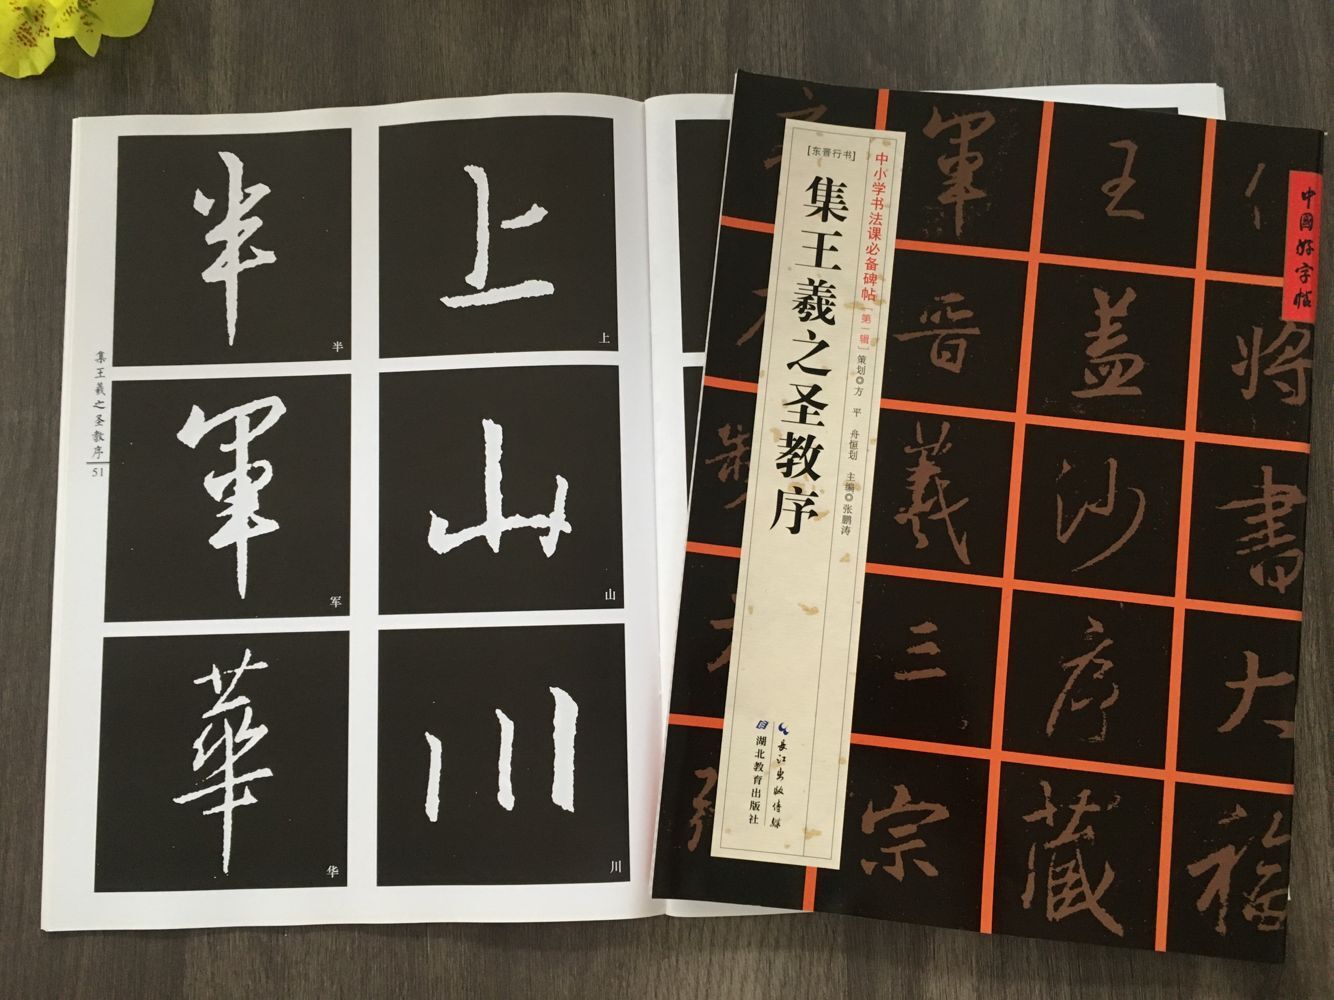 半
半
上
上
軍
军
山
山
華
华
川
川
集王羲之圣教序
51
[东晋行书]
集王羲之圣教序
中小学书法课必备碑帖[第一辑]
策划◎方 平 舟恒划 主编◎张鹏涛
長江出版傳媒
湖北教育出版社
中國好字帖
軍
王
晋
盖
将
羲
沙
書
三
序
大
宗
藏
福